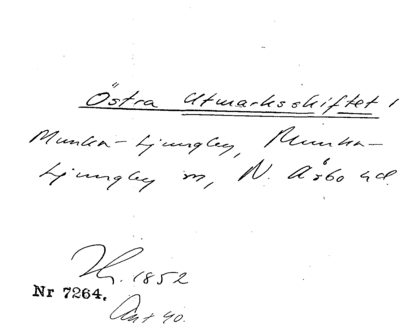 Östra Utmarksskiftet 1
Munka-Ljungby, Munka-
Ljungby sn, N. Åsbo hd.
Thr. 1852
Nr 7264.
Ant 40.